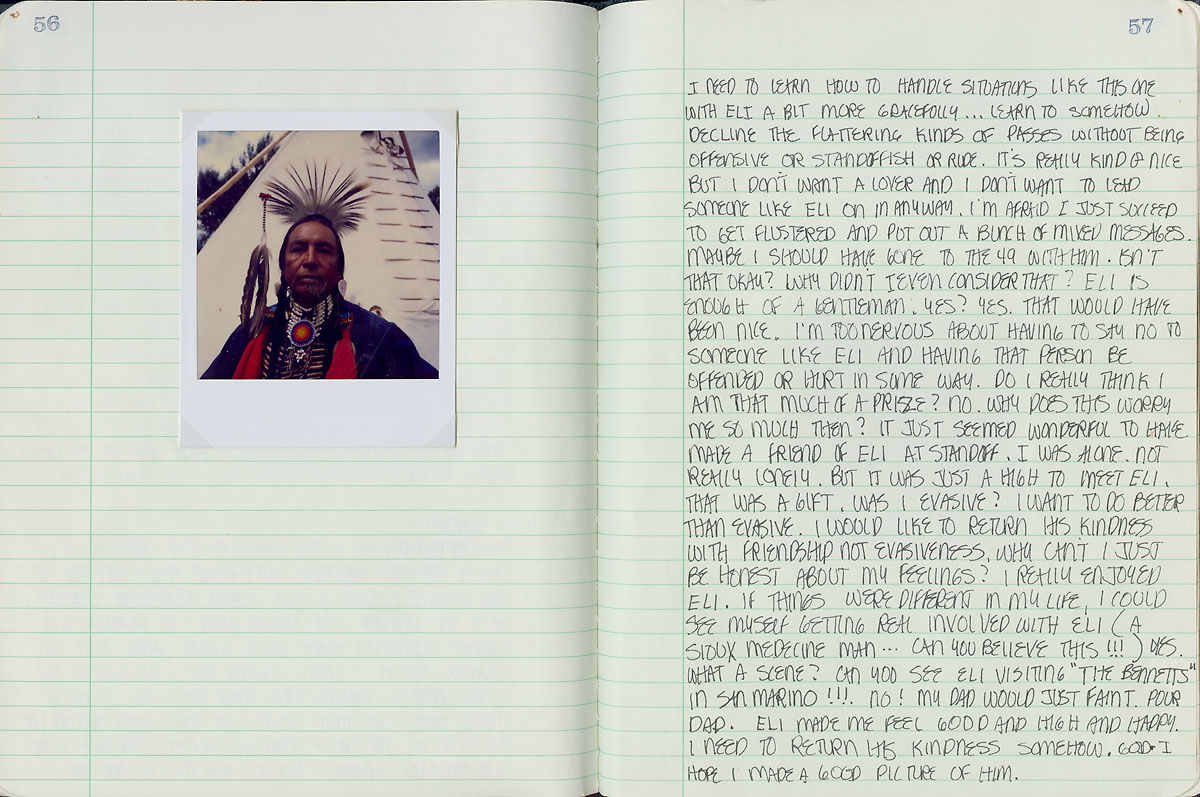 56
57
I NEED TO LEARN HOW TO HANDLE SITUATIONS LIKE THIS ONE
WITH ELI A BIT MORE GRACEFULLY... LEARN TO SOMEHOW
DECLINE THE FLATTERING KINDS OF PASSES WITHOUT BEING
OFFENSIVE OR STANDOFFISH OR RUDE. IT'S REALLY KIND OF NICE
BUT I DON'T WANT A LOVER AND I DON'T WANT TO LEAD
SOMEONE LIKE ELI ON IN ANYWAY. I'M AFRAID I JUST SUCCEED
TO GET FLUSTERED AND PUT OUT A BUNCH OF MIXED MESSAGES.
MAYBE I SHOULD HAVE GONE TO THE 49 WITH HIM. ISN'T
THAT OKAY? WHY DIDN'T I EVEN CONSIDER THAT? ELI IS
ENOUGH OF A GENTLEMAN. YES? YES. THAT WOULD HAVE
BEEN NICE. I'M TOO NERVOUS ABOUT HAVING TO SAY NO TO
SOMEONE LIKE ELI AND HAVING THAT PERSON BE
OFFENDED OR HURT IN SOME WAY. DO I REALLY THINK I
AM THAT MUCH OF A PRIZE? NO. WHY DOES THIS WORRY
ME SO MUCH THEN? IT JUST SEEMED WONDERFUL TO HAVE
MADE A FRIEND OF ELI AT STANDOFF. I WAS ALONE. NOT
REALLY LONELY. BUT IT WAS JUST A HIGH TO MEET ELI.
THAT WAS A GIFT. WAS I EVASIVE? I WANT TO DO BETTER
THAN EVASIVE. I WOULD LIKE TO RETURN HIS KINDNESS
WITH FRIENDSHIP NOT EVASIVENESS. WHY CAN'T I JUST
BE HONEST ABOUT MY FEELINGS? I REALLY ENJOYED
ELI. IF THINGS WERE DIFFERENT IN MY LIFE, I COULD
SEE MYSELF GETTING REAL INVOLVED WITH ELI (A
SIOUX MEDECINE MAN... CAN YOU BELIEVE THIS!!!) YES.
WHAT A SCENE? CAN YOU SEE ELI VISITING "THE BENNETTS"
IN SAN MARINO!!!. NO! MY DAD WOULD JUST FAINT. POUR
DAD. ELI MADE ME FEEL GOOD AND HIGH AND HAPPY.
I NEED TO RETURN HIS KINDNESS SOMEHOW. GOD I
HOPE I MADE A GOOD PICTURE OF HIM.